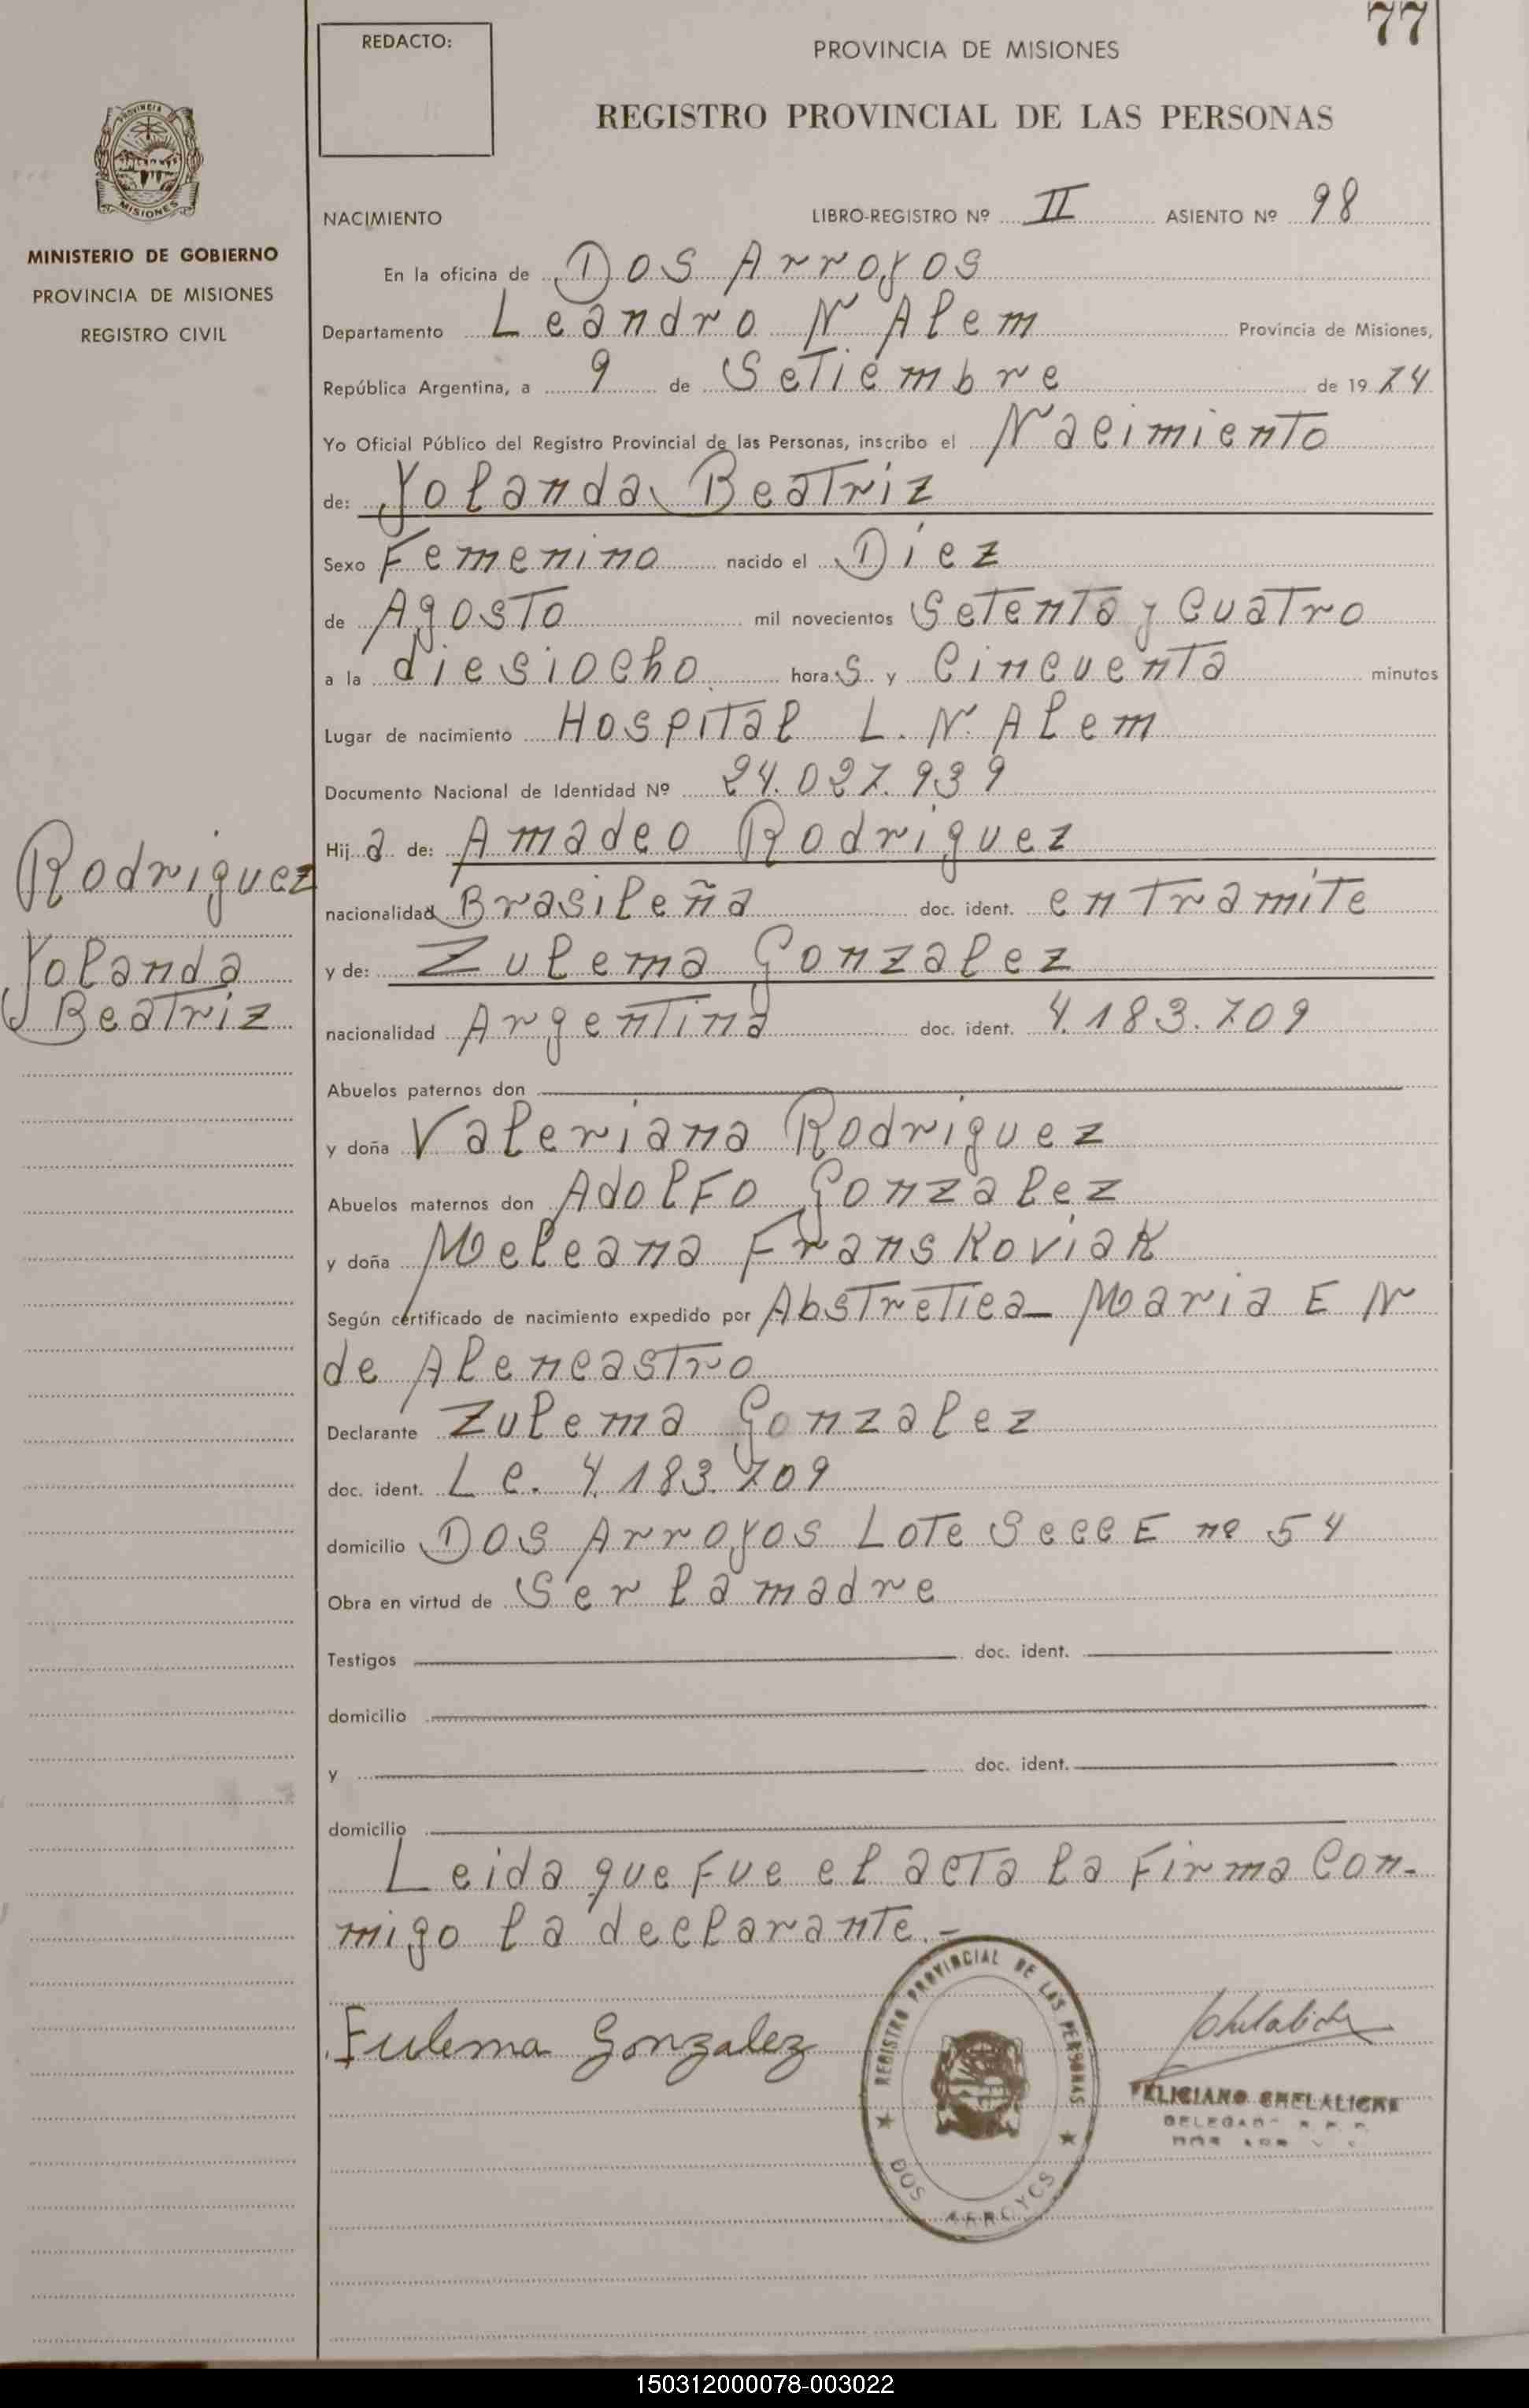 77
REDACTO:
PROVINCIA DE MISIONES
REGISTRO PROVINCIAL DE LAS PERSONAS
PROVINCIA
MISIONES
MINISTERIO DE GOBIERNO
PROVINCIA DE MISIONES
REGISTRO CIVIL
NACIMIENTO LIBRO-REGISTRO Nº II ASIENTO Nº 98
En la oficina de Dos Arroyos
Departamento Leandro N Alem Provincia de Misiones,
República Argentina, a 9 de Setiembre de 1974
Yo Oficial Público del Registro Provincial de las Personas, inscribo el Nacimiento
de: Yolanda Beatriz
Sexo Femenino nacido el Diez
de Agosto mil novecientos Setenta y Cuatro
a la diesiocho horas y Cincuenta minutos
Lugar de nacimiento Hospital L. N. Alem
Documento Nacional de Identidad Nº 24.027.939
Hija de: Amadeo Rodriguez
nacionalidad Brasileña doc. ident. en Tramite
y de: Zulema Gonzalez
nacionalidad Argentina doc. ident. 4.183.709
Rodriguez
Yolanda
Beatriz
Abuelos paternos don
y doña Valeriana Rodriguez
Abuelos maternos don Adolfo Gonzalez
y doña Meleana Franskoviak
Según certificado de nacimiento expedido por Abstretica - Maria E N
de Alencastro
Declarante Zulema Gonzalez
doc. ident. L c. 4.183.709
domicilio Dos Arroyos Lote Secc E nº 54
Obra en virtud de Ser la madre
Testigos doc. ident.
domicilio
y doc. ident.
domicilio
Leida que fue el acta la Firma Con-
migo la declarante.-
Zulema Gonzalez
REGISTRO PROVINCIAL DE LAS PERSONAS
DOS ARROYOS
FELICIANO CHELALICHE
150312000078-003022